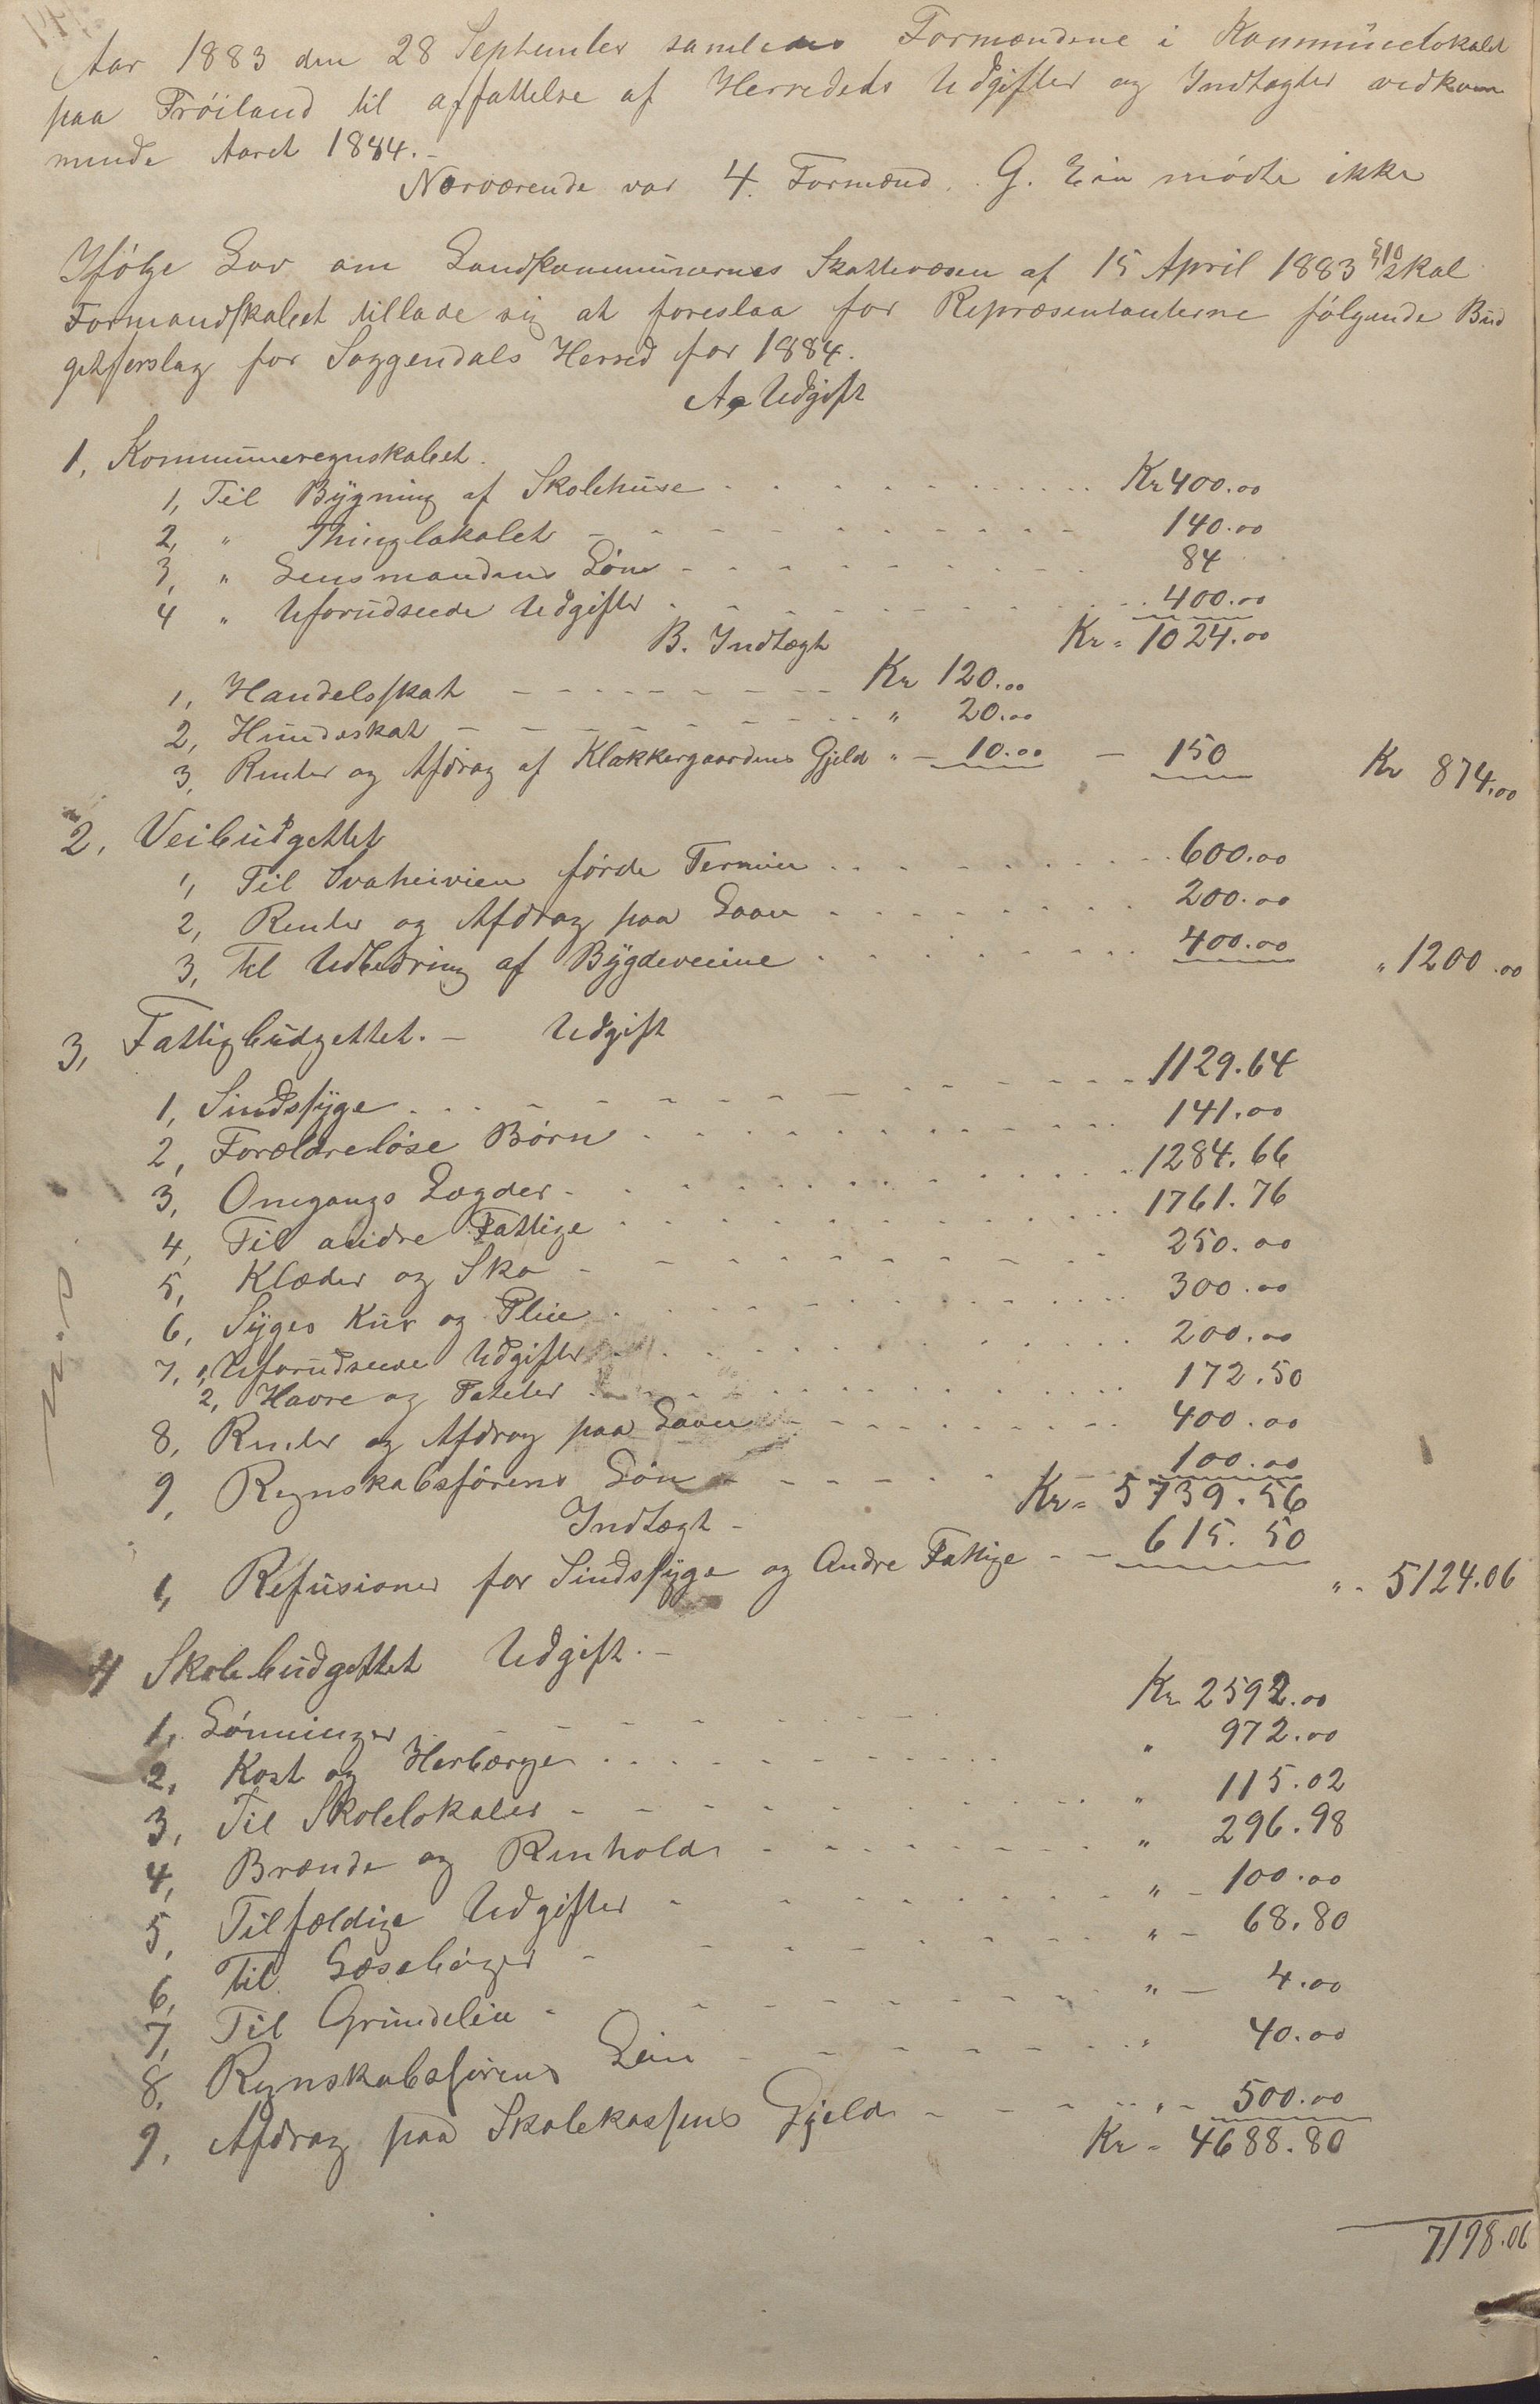 Aar 1883 den 28 September samledes Formændene i Kommunelokalet
paa Frøiland til affattelse af Herredets Udgifter og Indtægter vedkom
mende Aaret 1884.-
Nærværende var 4. Formænd. G. Eia mødte ikke
Ifølge Lov om Landkommunernes Skattevæsen af 15 April 1883 §10 skal
Formandskabet tillade sig at foreslaa for Repræsentanterne følgende Bud
getforslag for Soggendals Herred for 1884.
A, Udgift
1, Kommuneregnskabet.
1, Til Bygning af Skolehuse Kr 400.00
2, " Thinglokalet 140.00
3, " Lensmandens Løn 84
4 " Uforudseede Udgifter 400.00
B. Indtægt Kr = 1024.00
1, Handelsskat Kr 120.00
2, Hundeskat " 20.00
3, Renter og Afdrag af Klokkergaardens Gjeld " - 10.00 - 150 Kr 874.00
2, Veibudgettet
1, Til Svaheivien førde Termin 600.00
2, Renter og Afdrag paa Laan 200.00
3, Til Udbedring af Bygdeveiene 400.00 " 1200.00
3, Fattigbudgettet. - Udgift
1, Sindssyge 1129.64
2, Forældreløse Børn 141.00
3, Omgangs Lægder 1284.66
4, Til andre Fattige 1761.76
5, Klæder og Sko 250.00
6, Syges Kur og Pleie 300.00
7, 1, Uforudseede Udgifter 200.00
2, Havre og Poteter 172.50
8, Renter og Afdrag paa Laan 400.00
9, Regnskabsførens Løn 100.00
Indtægt - Kr = 5739.56
1, Refusioner for Sindssyge og Andre Fattige 615.50 " - 5124.06
4 Skolebudgettet Udgift. -
1, Lønninger Kr 2592.00
2, Kost og Herberge " 972.00
3, Til Skolelokaler " 115.02
4, Brænde og Renhold " 296.98
5, Tilfældige Udgifter " - 100.00
6, Til Læsebøger " - 68.80
7, Til Grundleie " - 4.00
8, Regnskabsførens Løn " 40.00
9, Afdrag paa Skolekassens Gjeld " - 500.00
Kr - 4688.80
7198.06